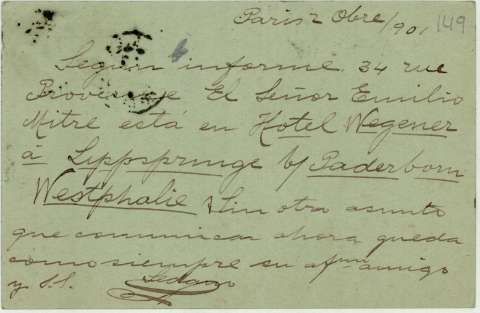 Paris 2 Obre/901 149
Segun informe 34 rue
Provensage El Señor Emilio
Mitre está en Hotel Wegener
á Lippspringe b/ Paderborn
Westphalie & Sin otro asunto
que comunicar ahora queda
como siempre su afmo amigo
y S.S.